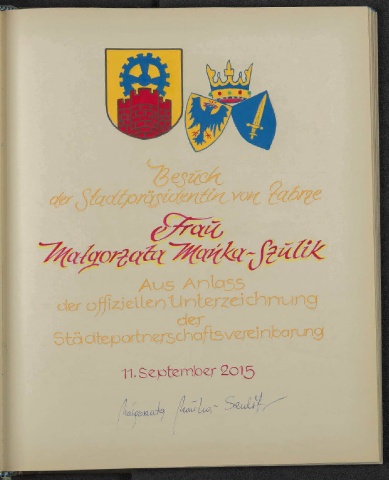 Besuch
der Stadtpräsidentin von Zabrze
Frau
Malgorzata Mańka-Szulik
Aus Anlass
der offiziellen Unterzeichnung
der
Städtepartnerschaftsvereinbarung
11. September 2015
Małgorzata Mańka-Szulik